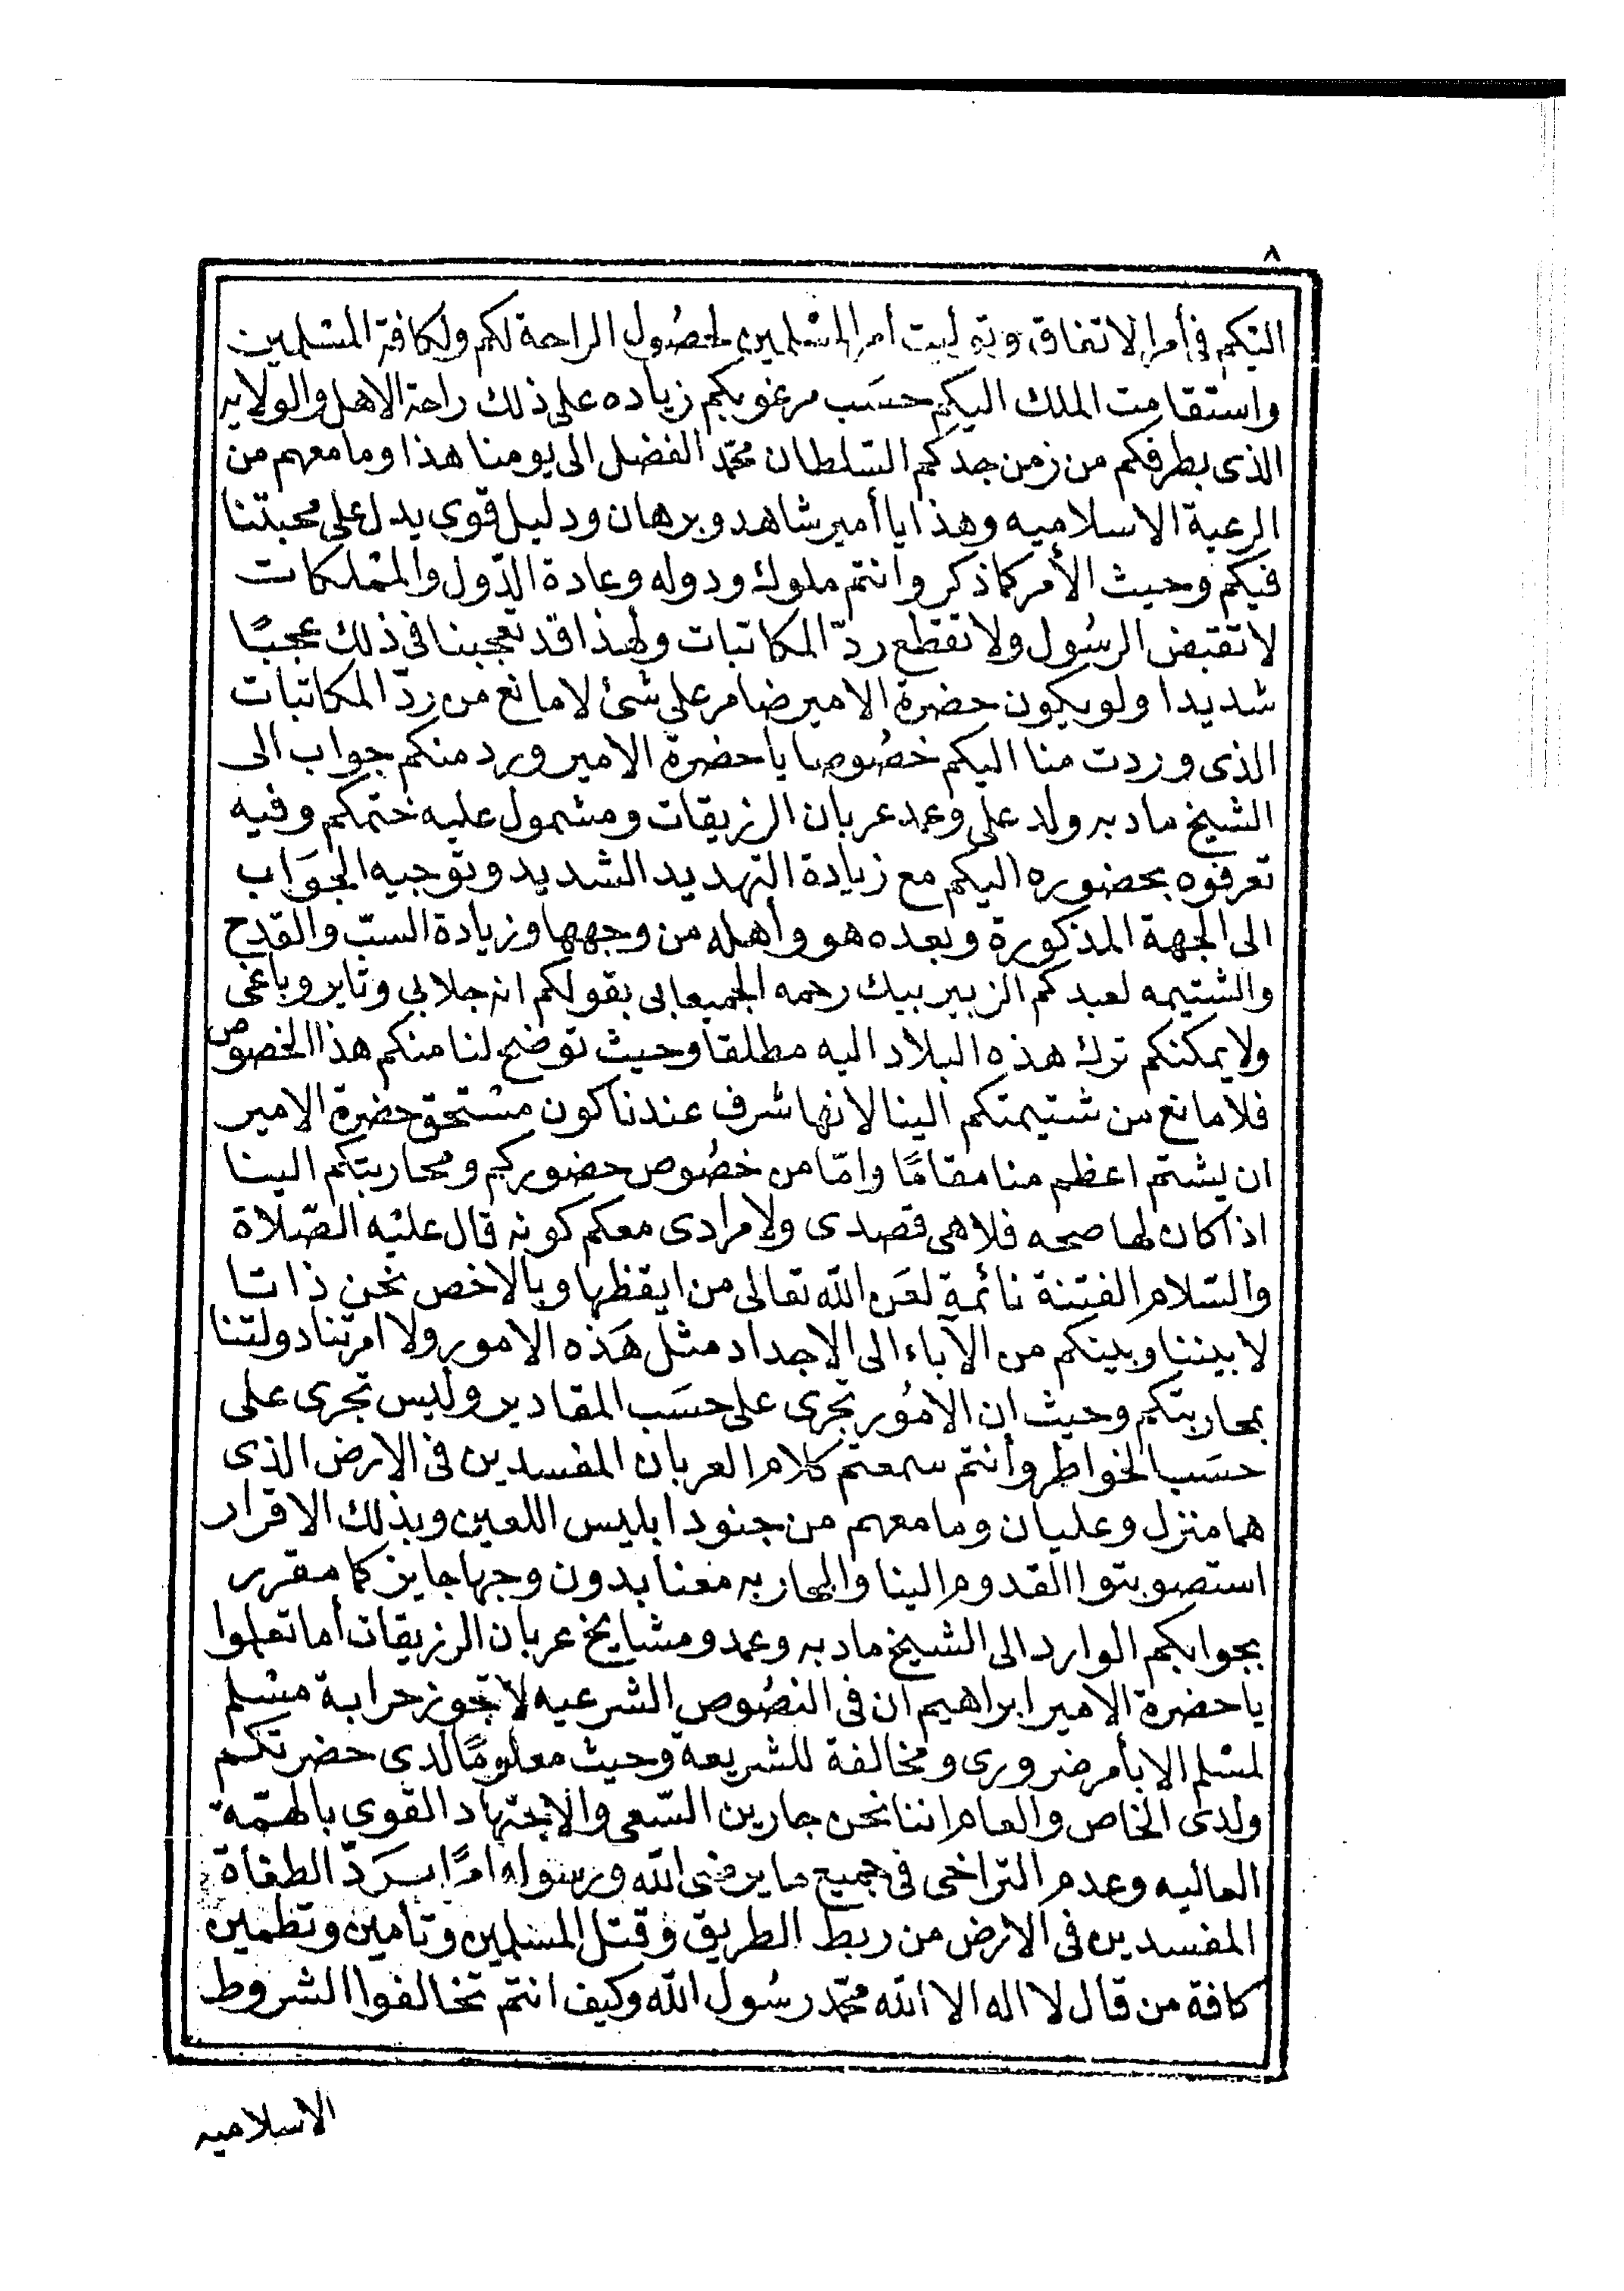 ٨
اليكم في أمر الاتفاق وتوليت أمر المسلمين لحصول الراحة لكم ولكافة المسلمين
واستقامت الملك اليكم حسب مرغوبكم زياده على ذلك راحة الاهل والولايه
الذى بطرفكم من زمن جدكم السلطان محمد الفضل الى يومنا هذا وما معهم من
الرعية الاسلاميه وهذا يا أمير شاهد وبرهان ودليل قوي يدل على محبتنا
فيكم وحيث الأمر كما ذكر وانتم ملوك ودوله وعادة الدّول والمملكات
لا تقبض الرسُول ولا تقطع ردّ المكاتبات ولهذا قد تعجبنا في ذلك عجبًا
شديدا ولو يكون حضرة الامير ضامر على شئ لا مانع من ردّ المكاتبات
الذى وردت منا اليكم خصُوصا يا حضرة الامير ورد منكم جواب الى
الشيخ مادبه ولد على وعمد عربان الرزيقات ومشمول عليه ختمكم وفيه
تعرفوه بحضوره اليكم مع زيادة التهديد الشديد وتوجيه الجوَاب
الى الجهة المذكورة وبعده هو وأهله من وجهها وزيادة السبّ والقدح
والشتيمه لعبدكم الزبير بيك رحمه الجميعابى بقولكم انه جلابي وثاير وباغى
ولا يمكنكم ترك هذه البلاد اليه مطلقا وحيث توضح لنا منكم هذا الخصوص
فلا مانع من شتيمتكم الينا لانها شرف عندنا كون مستحق حضرة الامير
ان يشتم اعظم منا مقامًا وامّا من خصُوص حضوركم ومحاربتكم الينا
اذا كان لها صحه فلا هى قصدى ولا مرادى معكم كونه قال عليْه الصّلاة
والسّلام الفتنة نائمة لعَن الله تعالى من ايقظها وبالاخص نحن ذاتا
لا بيننا وبينكم من الآباء الى الاجداد مثل هَذه الامور ولا امرتنا دولتنا
بمحاربتكم وحيث ان الامُور تجرى على حسَب المقادير وليس تجرى على
حسَب الخواطر وأنتم سمعتم كلام العربان المفسدين فى الارض الذى
هما منزل وعليان وما معهم من جنود ابليس اللعين وبذلك الاقرار
استصوبتوا القدوم الينا والمحاربه معنا بدون وجها جايز كما مقرر
بجوابكم الوارد الى الشيخ مادبه وعمد ومشايخ عربان الرزيقات أما تعلموا
يا حضرة الامير ابراهيم ان فى النصُوص الشرعيه لا تجوز حرابة مسْلم
لمسْلم الا بأمر ضرورى ومخالفة للشريعة وحيث معلومًا لدى حضرتكم
ولدى الخاص والعام اننا نحن جارين السّعى والاجتهاد القوى بالهمّة
العاليه وعدم التراخى فى جميع ما يرضى الله ورسوله امرًا بردّ الطغاة
المفسدين فى الارض من ربط الطريق وقتل المسلمين وتأمين وتطمين
كافة من قال لا اله الا الله محمّد رسُول الله وكيف انتم تخالفوا الشروط
الاسلاميه